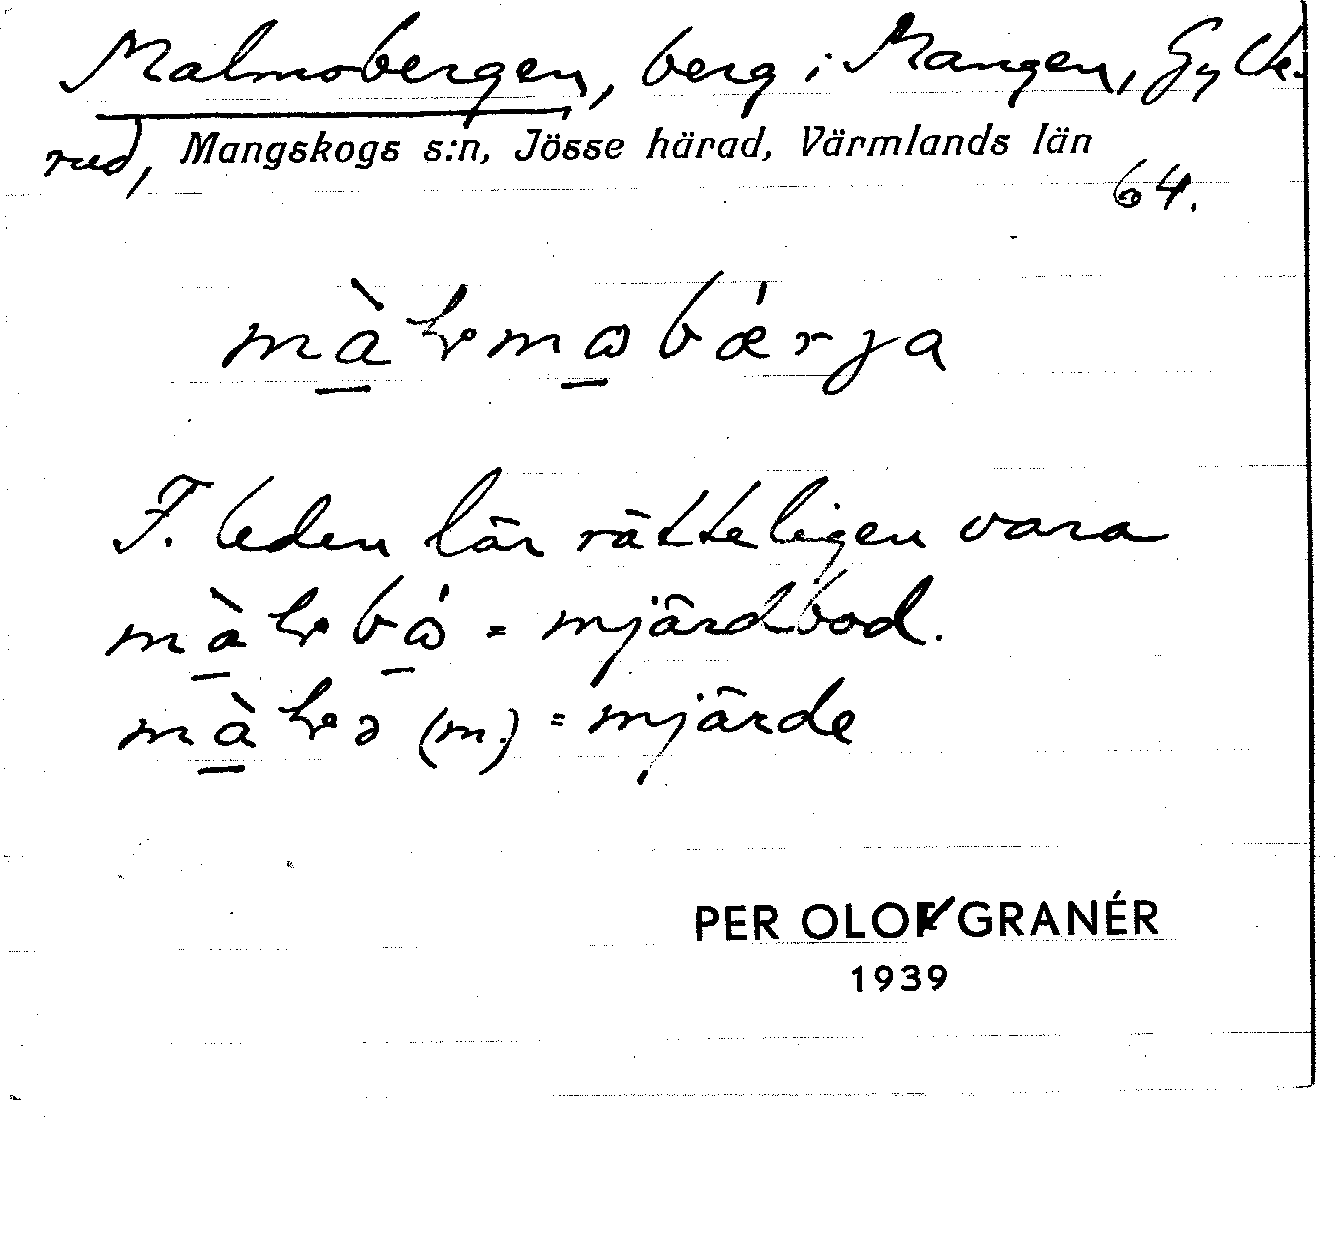 Malmobergen, berg i Mangen, Gylle-
rud, Mangskogs s:n, Jösse härad, Värmlands län
64.
F. leden lär rätteligen vara
= mjärdbod.
(m.) = mjärde
PER OLOF GRANÉR
1939